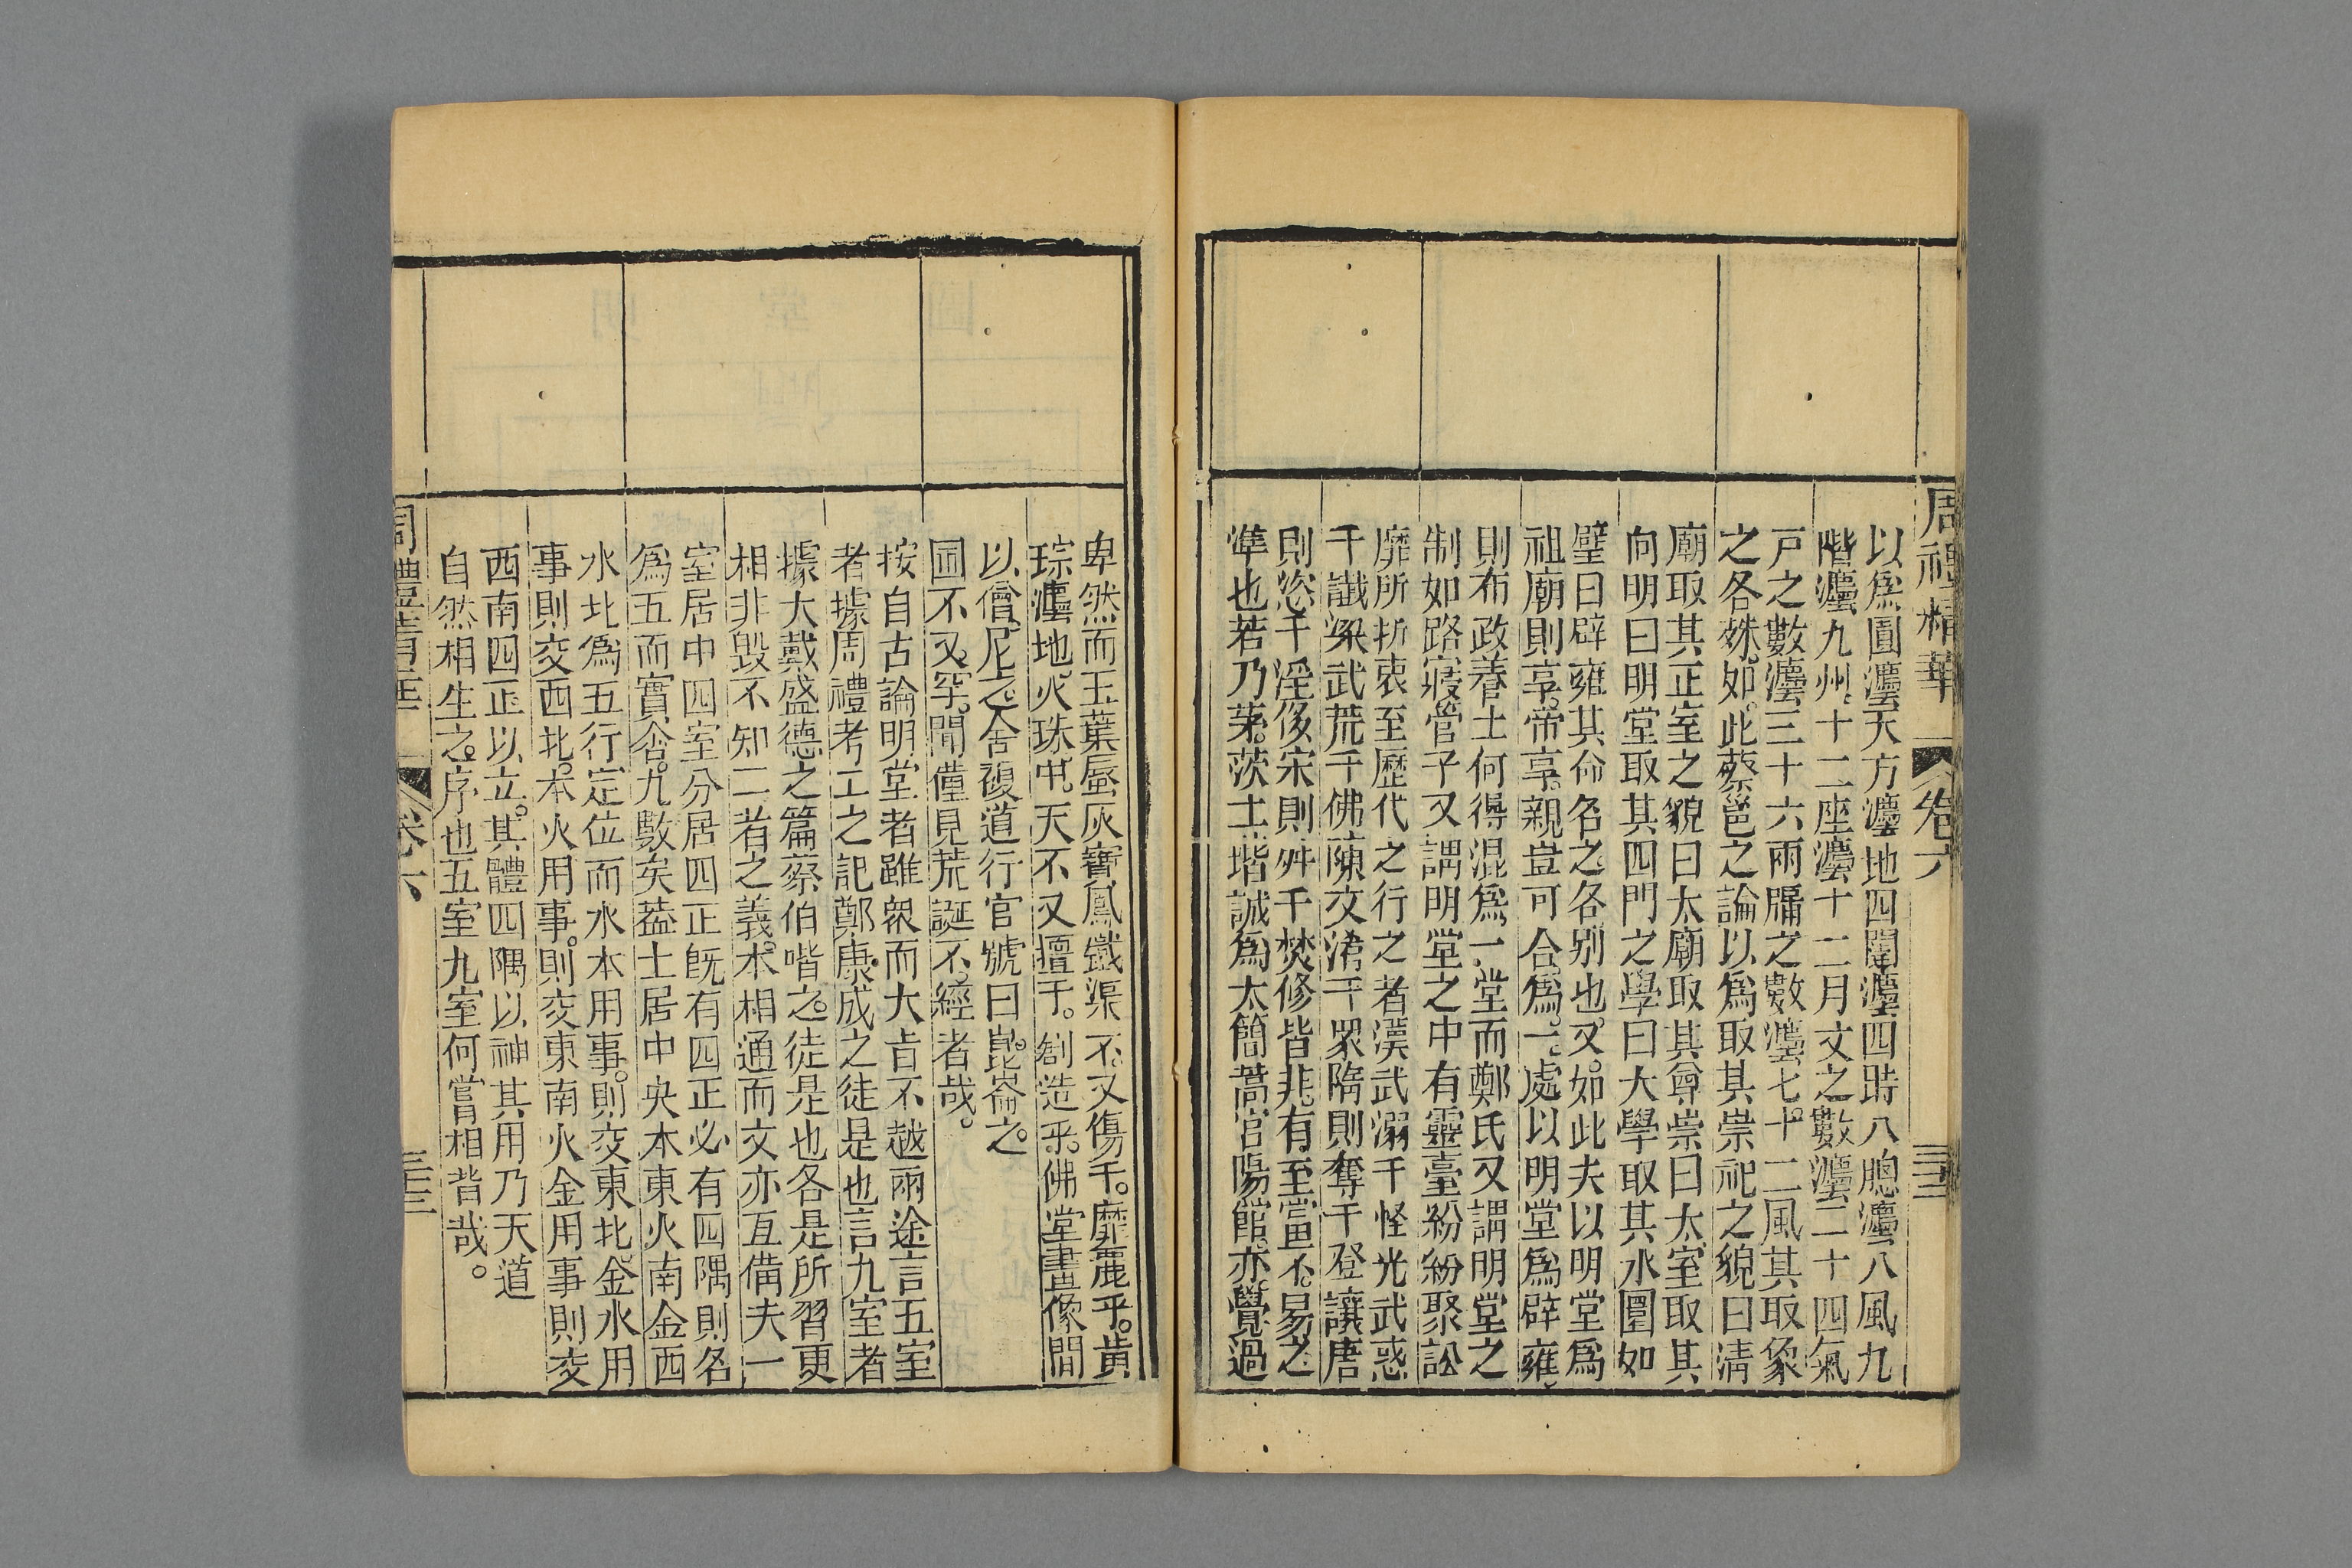 周禮精華 卷六 三十二
以爲圓灋天方灋地四闥灋四時八牕灋八風九
階灋九州十二座灋十二月文之數灋二十四氣
戸之數灋三十六兩牖之數灋七十二風其取象
之各姝如此蔡邕之論以爲取其崇祀之貌曰淸
廟取其正室之貌曰太廟取其尊崇曰太室取其
向明曰明堂取其四門之學曰大學取其水圜如
璧曰辟雍其命名之各别也又如此夫以明堂爲
祖廟則享帝享親豈可合爲一處以明堂爲辟雍
則布政養士何得混爲一堂而鄭氏又謂明堂之
制如路寢管子又謂明堂之中有靈臺紛紛聚訟
靡所折衷至歷代之行之者漢武溺千怪光武惑
千讖梁武荒千佛陳文淆千衆隋則奪千登讓唐
則恣千淫侈宋則舛千焚修皆非有至當不易之
準也若乃茅茨土堦誠爲太簡蒿宮陽館亦覺過
卑然而玉葉蜃灰寶鳳鐵渠不又傷千靡麗乎黄
琮灋地火珠中天不又擅于創造乎佛堂畫像間
以僧尼之舍複道行官號曰崑崙之
圖不又罕聞僅見荒誕不經者哉。
按自古論明堂者雖衆而大㫖不越兩途言五室
者據周禮考工之記鄭康成之徒是也言九室者
據大戴盛德之篇蔡伯喈之徒是也各是所習更
相非毁不知二者之義本相通而文亦互備夫一
室居中四室分居四正旣有四正必有四隅則名
爲五而實含九數矣葢土居中央木東火南金西
水北爲五行定位而水本用事則交東北金水用
事則交西北本火用事則交東南火金用事則交
西南四正以立其體四隅以神其用乃天道
自然相生之序也五室九室何嘗相背哉。
卷六 三十二